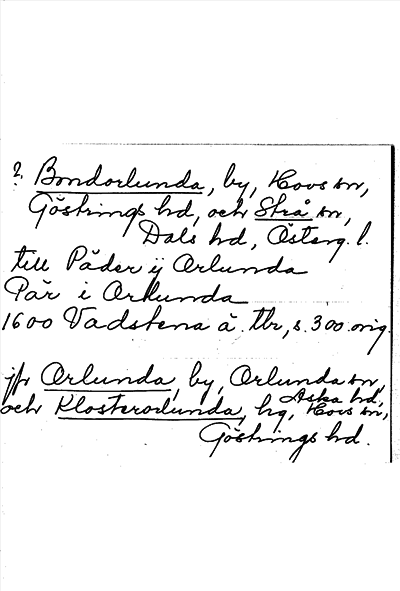 ? Bondorlunda, by, Hovs sn,
Göstrings hd, och Strå sn,
Dals hd, Österg. l.
till Päder ij Orlunda
Pär i Orlunda
1600 Vadstena ä. tbr, s. 300. orig.
jfr Orlunda, by, Orlunda sn,
Aska hd,
och Klosterorlunda, hg, Hovs sn,
Göstrings hd.